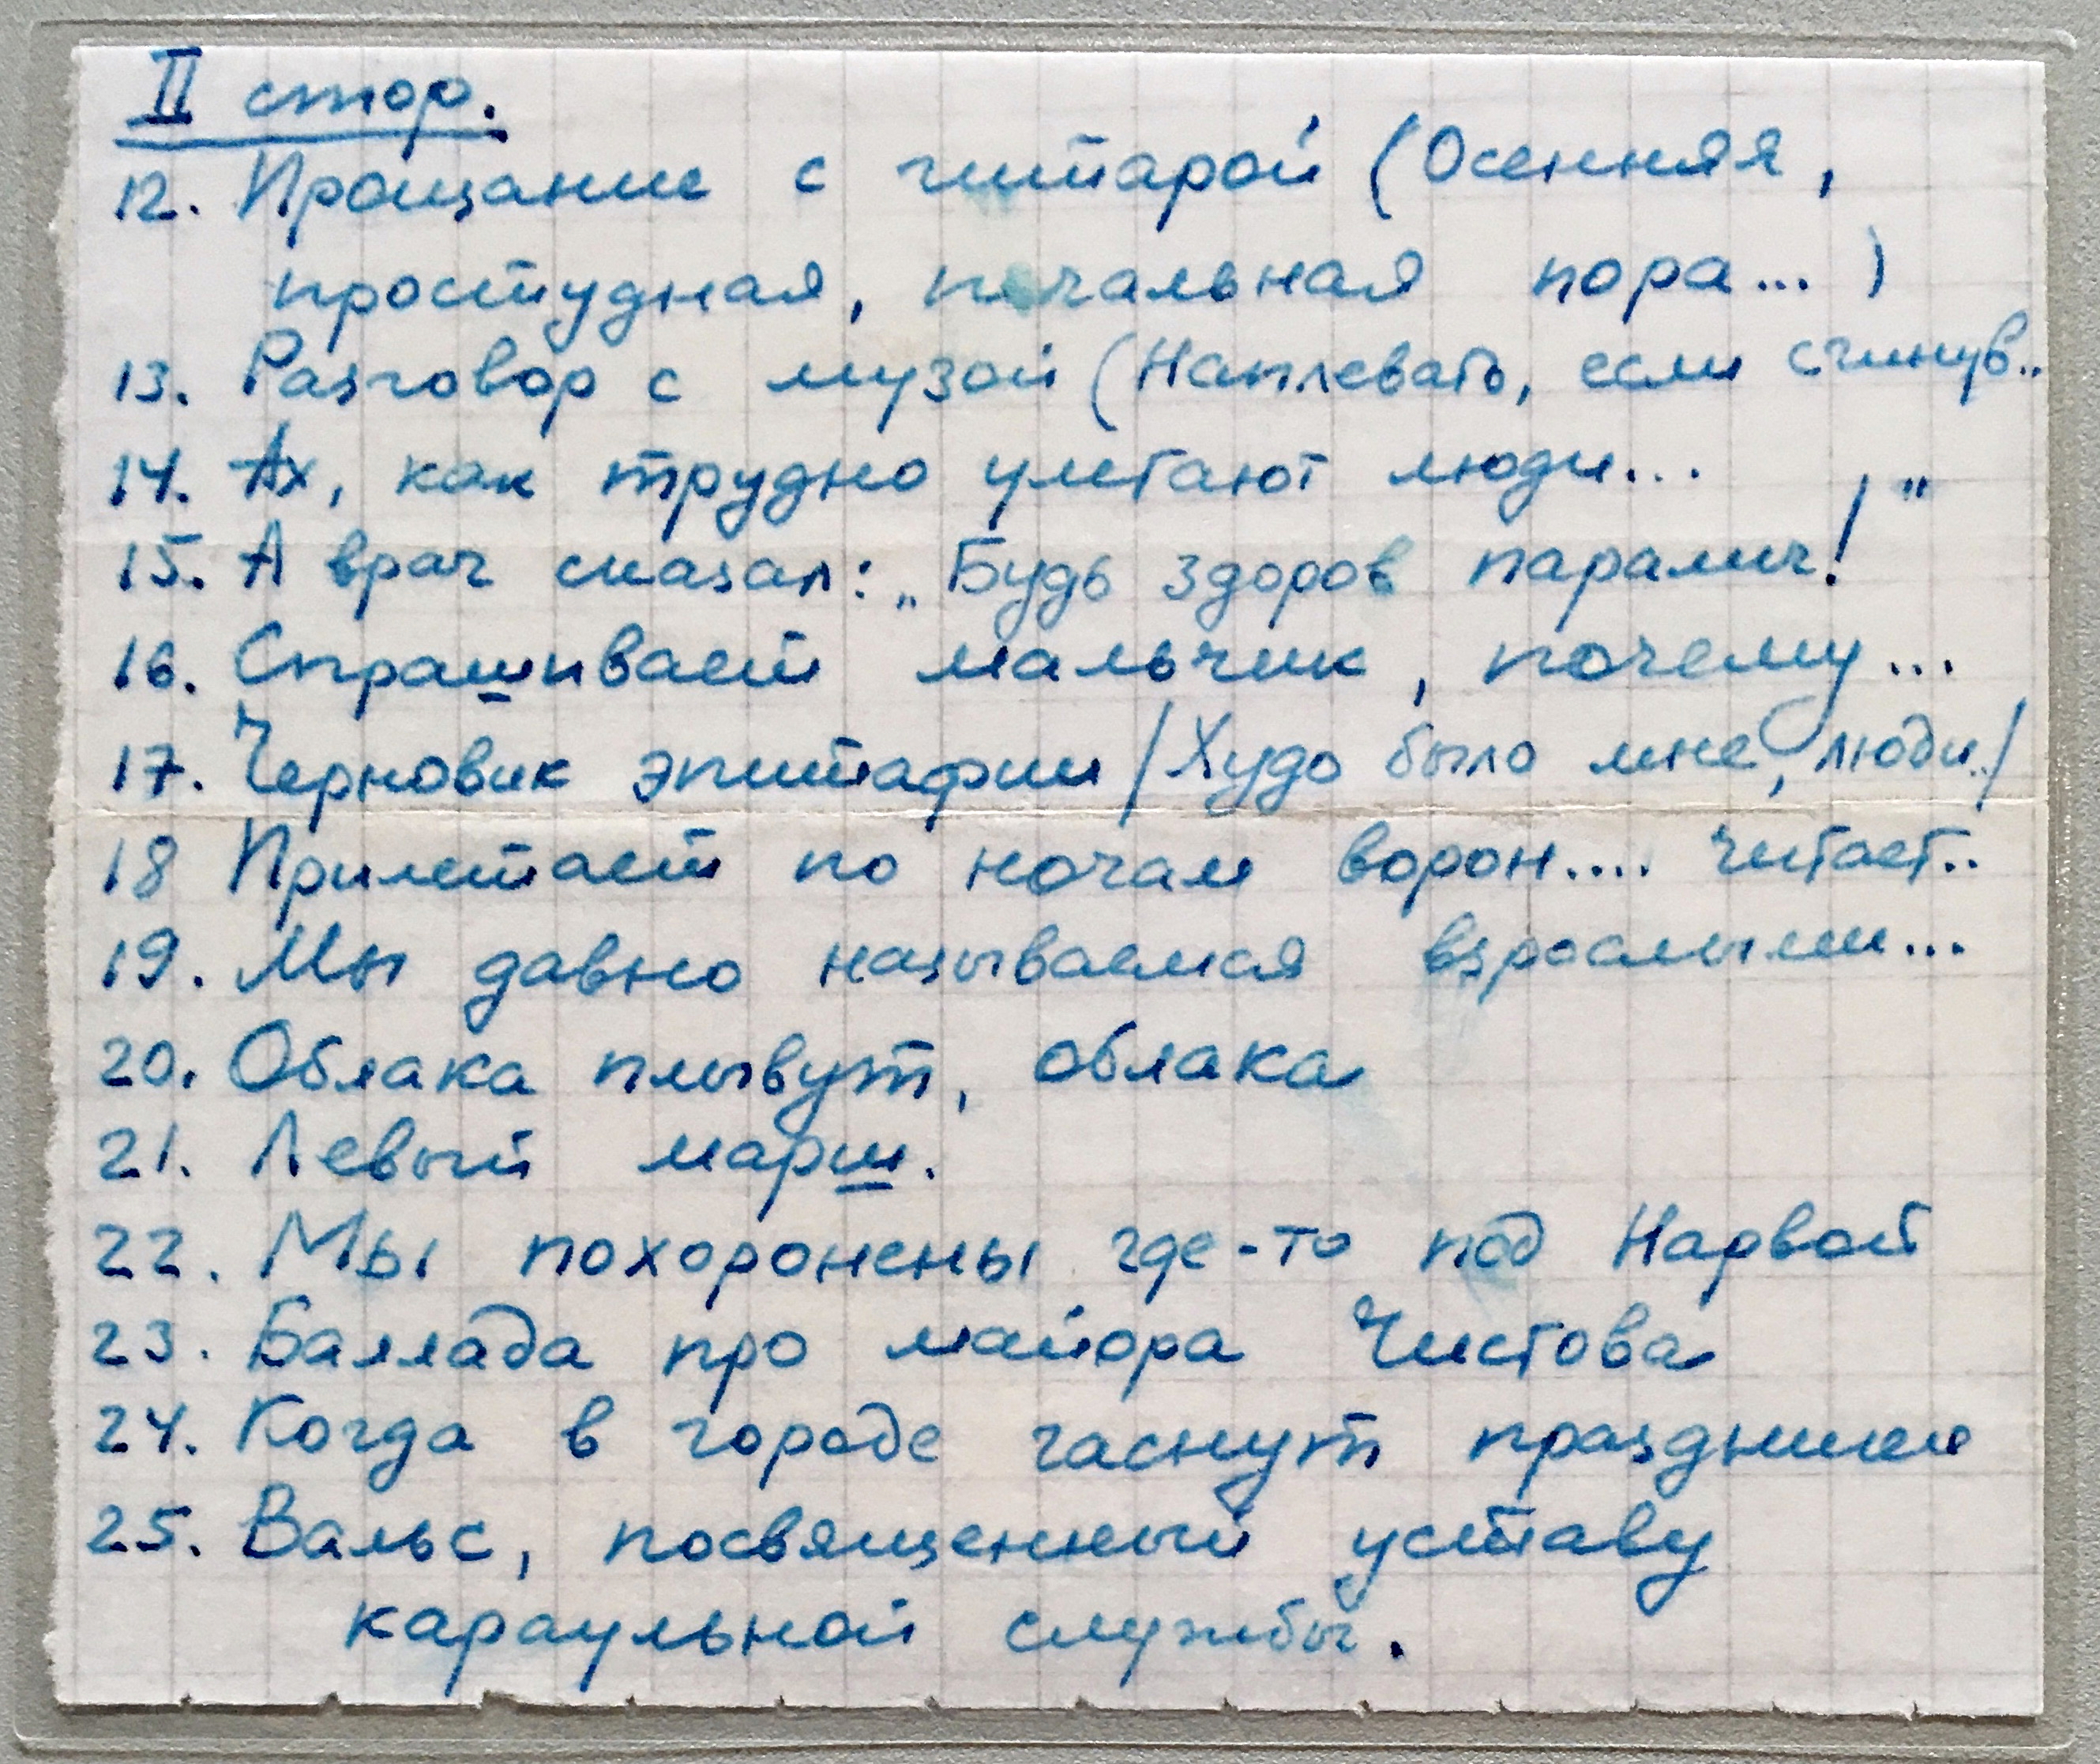 II стор.
12. Прощание с гитарой (Осенняя,
простудная, печальная пора... )
13. Разговор с музой (Наплевать, если сгинув..
14. Ах, как трудно улетают люди...
15. А врач сказал: „Будь здоров паралич!"
16. Спрашивает мальчик, почему...
17. Черновик эпитафии /Худо было мне, люди../
18 Прилетает по ночам ворон.... читает..
19. Мы давно называемся взрослыми...
20. Облака плывут, облака
21. Левый марш.
22. Мы похоронены где-то под Нарвой
23. Баллада про майора Чистова
24. Когда в городе гаснут праздники
25. Вальс, посвященный уставу
караульной службы.